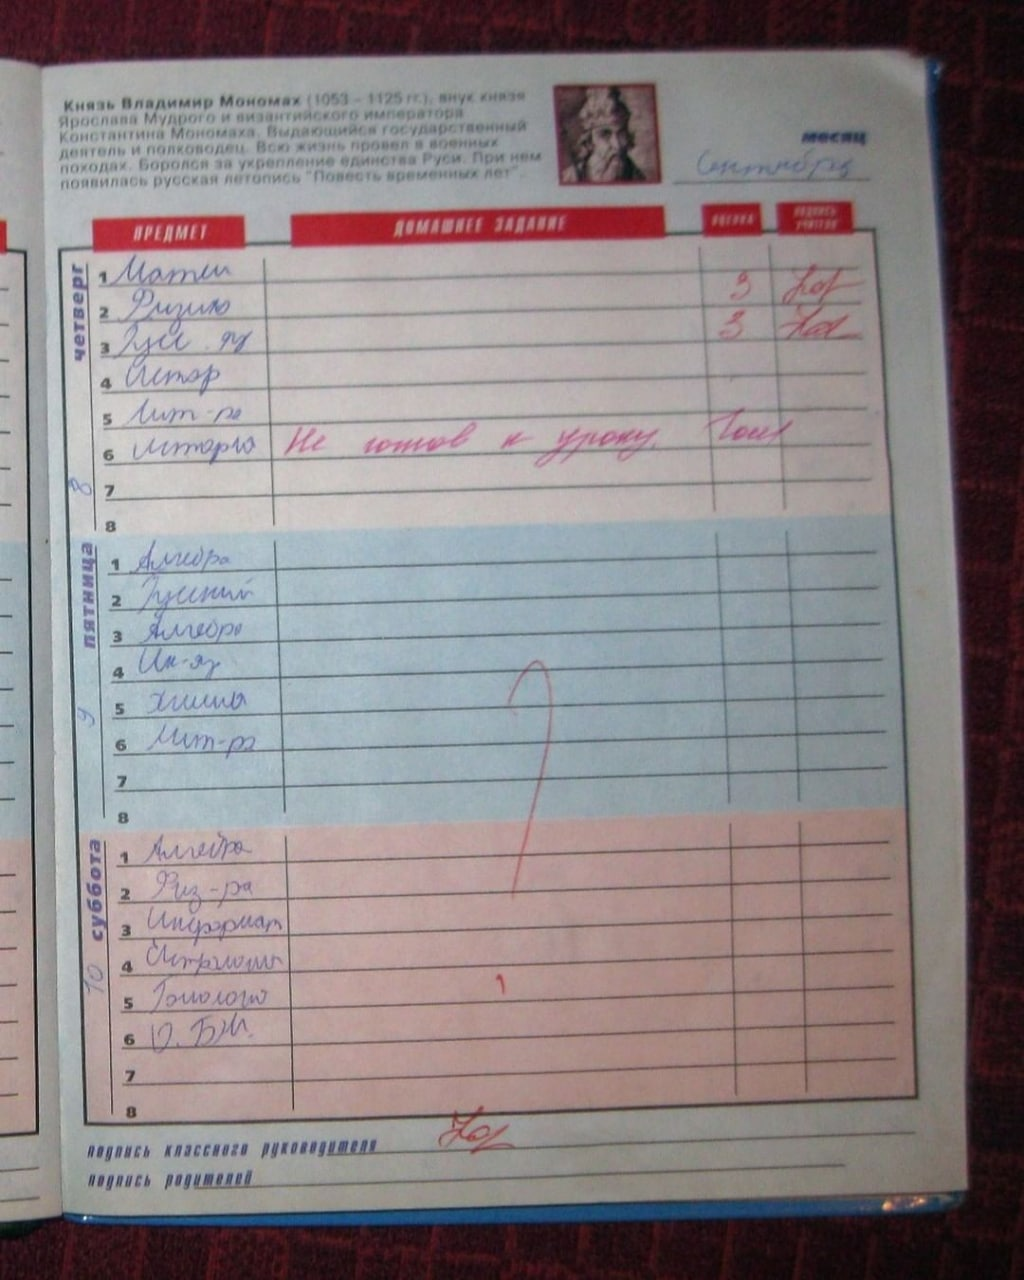 Князь Владимир Мономах (1053 – 1125 гг.), внук князя
Ярослава Мудрого и византийского императора
Константина Мономаха. Выдающийся государственный
деятель и полководец. Всю жизнь провел в военных
походах. Боролся за укрепление единства Руси. При нем
появилась русская летопись "Повесть временных лет".
месяц
Сентябрь
ПРЕДМЕТ ДОМАШНЕЕ ЗАДАНИЕ ОЦЕНКА ПОДПИСЬ УЧИТЕЛЯ
четверг
8
1 Матем
2 Физика 3
3 Русс. яз 3
4 Истор
5 Лит-ра
6 история Не готов к уроку.
7
8
пятница
9
1 Алгебра
2 Русский
3 Алгебра
4 Ин-яз
5 химия
6 Лит-ра
7
8
суббота
10
1 Алгебра
2 Физ-ра
3 Информат
4
5
6 О.БЖ.
7
8
?
подпись классного руководителя
подпись родителей